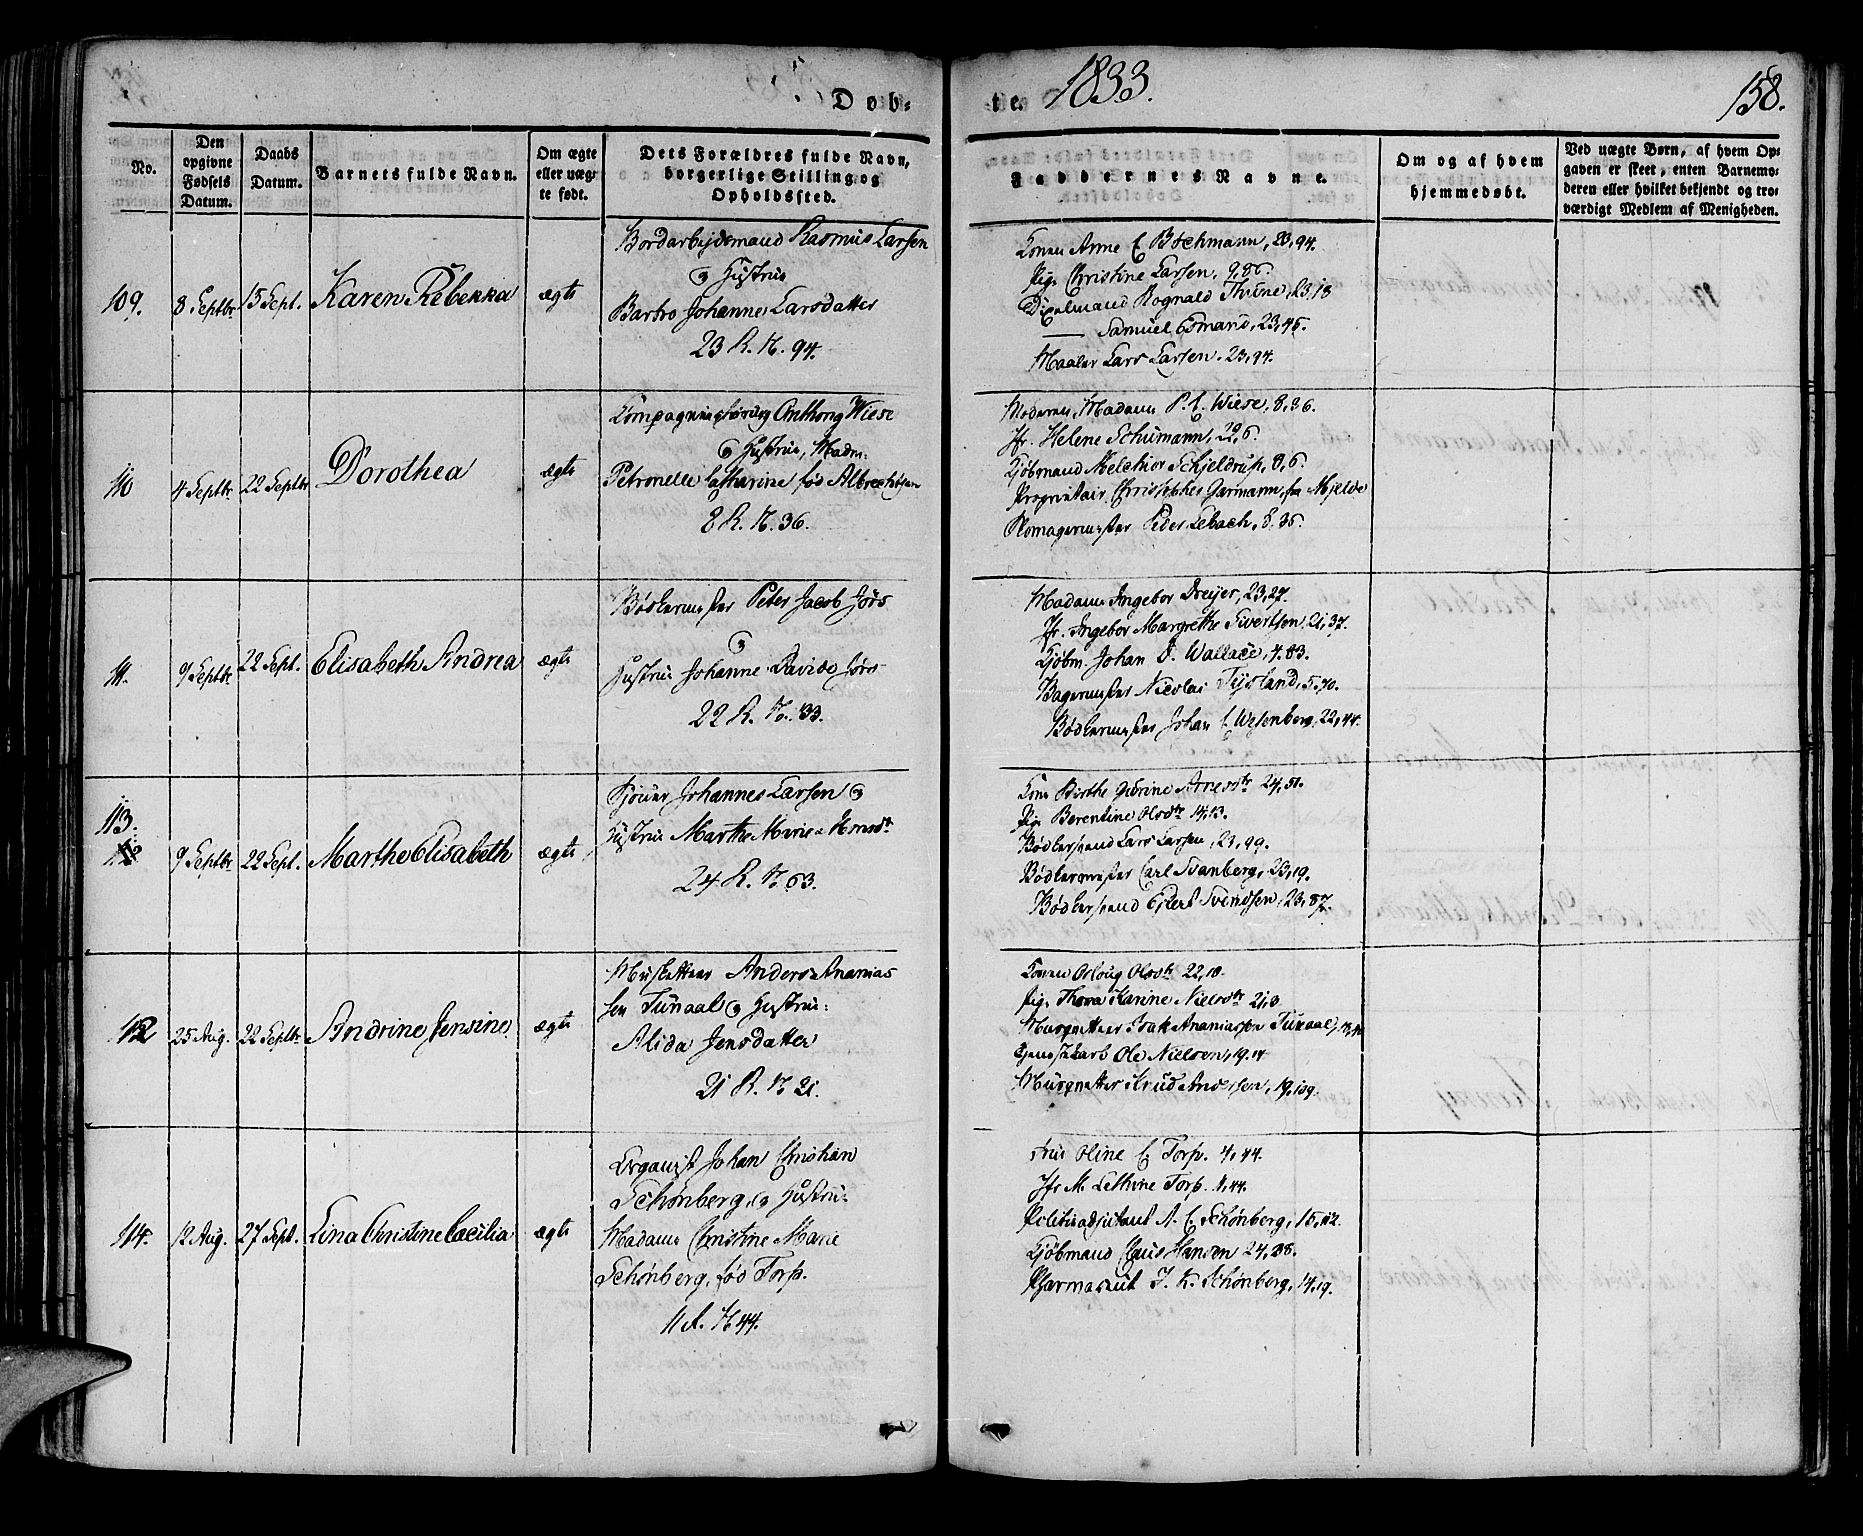 Døb-
te. 1833.
158.
No.
Den opgivne Fødsels Datum.
Daabs Datum.
Barnets fulde Navn.
Om ægte eller uægte født.
Dets Forældres fulde Navn, borgerlige Stilling og Opholdssted.
Faddernes Navne.
Om og af hvem hjemmedøbt.
Ved uægte Børn, af hvem Opgaven er skeet, enten Barnemoderen eller hvilket bekjendt og troværdigt Medlem af Menigheden.
109.
8 Septbr
15 Sept.
Karen Rebekka
ægte
Bordarbejdsmand Rasmus Larsen
og Hustrue
Johanne Larsdatter
23 R. N. 94.
Konen Anne C Bøchmann, 23, 94.
Pige Christine Larsen, 9, 86.
Rognald Thime, 23, 18
Samuel Osmand, 23, 46.
Maaler Lars Larsen, 23, 94.
110
4 Septbr
22 Septbr
Dorothea
ægte
Anthony Wiese
og Hustrue, Madm:
Petronelle Catharine fød Albrechtsen
8 R. N. 36.
Moderen, Madame P. C. Wiese, 8, 36.
Jfr. Helene Schumann, 22, 6.
Kjøbmand Melchior Schjeldrup, 8, 6.
Proprietair Christopher Garmann, fra Mjelde
Peder Lebach, 8, 36.
111.
9 Septbr
22 Sept.
Elisabeth Andrea
ægte
Bødkermester Peter Jacob Jørs
og
Hustrue Johanne Davida Jørs
22 R. No. 33.
Madame Ingebor Dreyer, 23, 27.
Jfr. Ingebor Margrethe Sivertsen, 21, 37.
Kjøbm. Johan D. Wallace, 4, 83.
Bagermester Nicolai 5, 70.
Bødkermester Johan C Wesenberg, 22, 44.
113.
9 Septbr
22 Sept.
Marthe Elisabeth
ægte
Johannes Larsen og
Hustrue Marthe Marie
24 R. N. 63.
Kone Birthe Gurine 24, 51.
Pige Berentine Olsdtr 14, 13.
Bødkersvend Lars Larsen, 23, 99.
Bødkermester Carl Svanberg, 23, 19.
Bødkersvend Ejlert Svendsen, 23, 87.
112
25 Aug.
22 Septbr.
Andrine Jensine
ægte
Musketteer Anders Ananias
sen Tunaal og Hustrue:
Alida Jensdatter
21 R. N. 21.
Konen Osloug Olsdtr 22, 10.
Pige Thora Karine Nielsdtr 21, 3
Musquetteer Isak Ananiassen Tunaal,
Ole Nielsen, 19, 14
Musquetteer Knud Andersen, 19, 109.
114.
12 Aug.
27 Sept.
Lina Christine Cæcilia
ægte
Organist Johan Christian
Schønberg, og Hustrue
Madame Christine Marie
Schønberg, fød Torp.
11 R. N 44.
Frue Oline C Torp. 4, 44.
Jfr M. Lethine Torp 4, 44.
Politieadjutant A. C. Schønberg, 15, 42.
Kjøbmand Claus Hansen 24, 28.
Pharmaceut J. K. Schønberg, 14, 19.